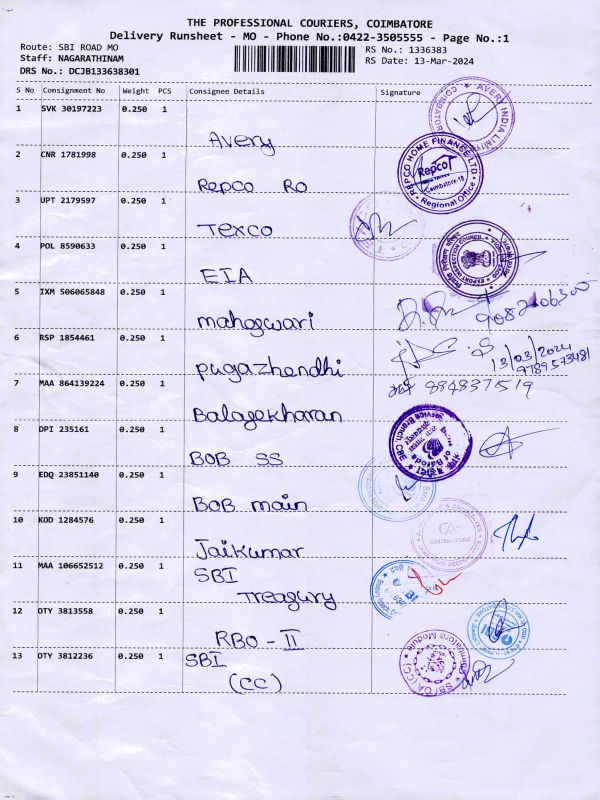 THE PROFESSIONAL COURIERS, COIMBATORE
Delivery Runsheet - MO - Phone No.:0422-3505555 - Page No.:1
Route: SBI ROAD MO
RS No.: 1336383
Staff: NAGARATHINAM
RS Date: 13-Mar-2024
DRS No.: DCJB133638301
S No Consignment No Weight PCS Consignee Details Signature
1 SVK 30197223 0.250 1
Avery
AVERY INDIA LIMITED COIMBATORE
2 CNR 1781998 0.250 1
Repco RO
REPCO HOME FINANCE LTD Repco Coimbatore-18 Regional Office
3 UPT 2179597 0.250 1
Texco
4 POL 8590633 0.250 1
EIA
EXPORT INSPECTION COUNCIL
5 IXM 506065848 0.250 1
maheswari
6 RSP 1854461 0.250 1
pugazhendhi
13/03/2024
9789573481
7 MAA 864139224 0.250 1
Balasekharan
8848371519
8 DPI 235161 0.250 1
BOB SS
Service Branch, CBE
of Baroda
9 EDQ 23851140 0.250 1
BOB main
10 KOD 1284576 0.250 1
Jaikumar
COIMBATORE
11 MAA 106652512 0.250 1
SBI
Treasury
12 OTY 3813558 0.250 1
RBO - II
13 OTY 3812236 0.250 1
SBI
(CC)
Coimbatore Module
SBI OA (CC)